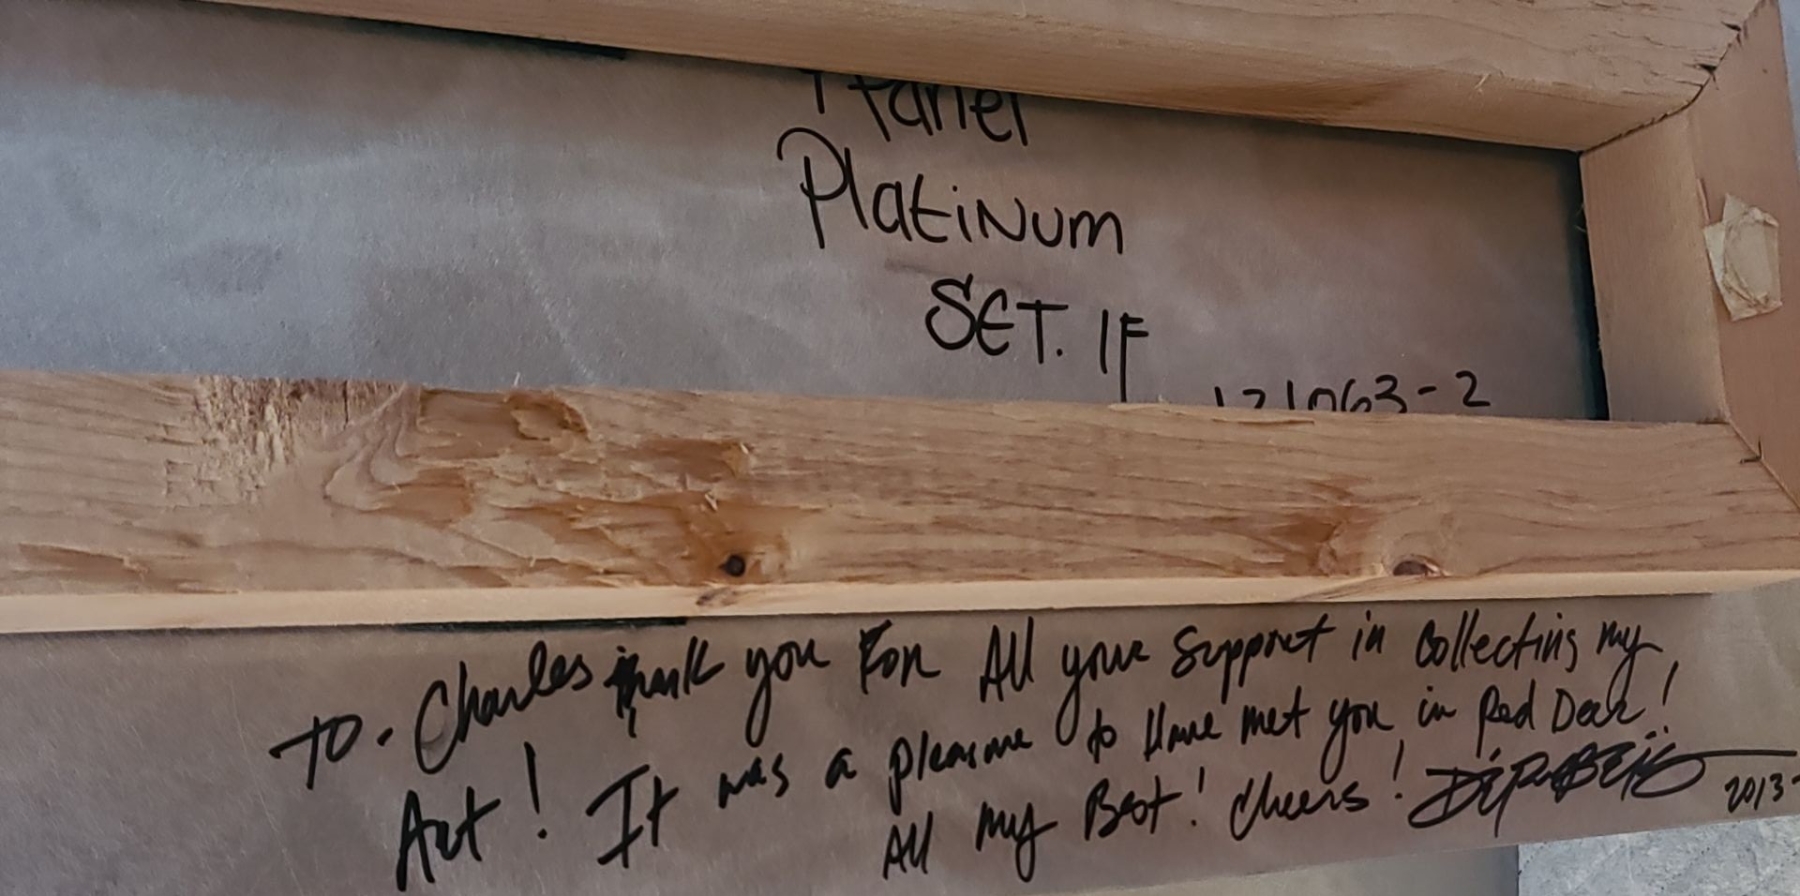 Platinum
SET. 1F
121063-2
To. Charles thank you For All your Support in Collecting my
Art! It was a pleasure to Have met you in Red Deer!
All my Best! Cheers!
2013-